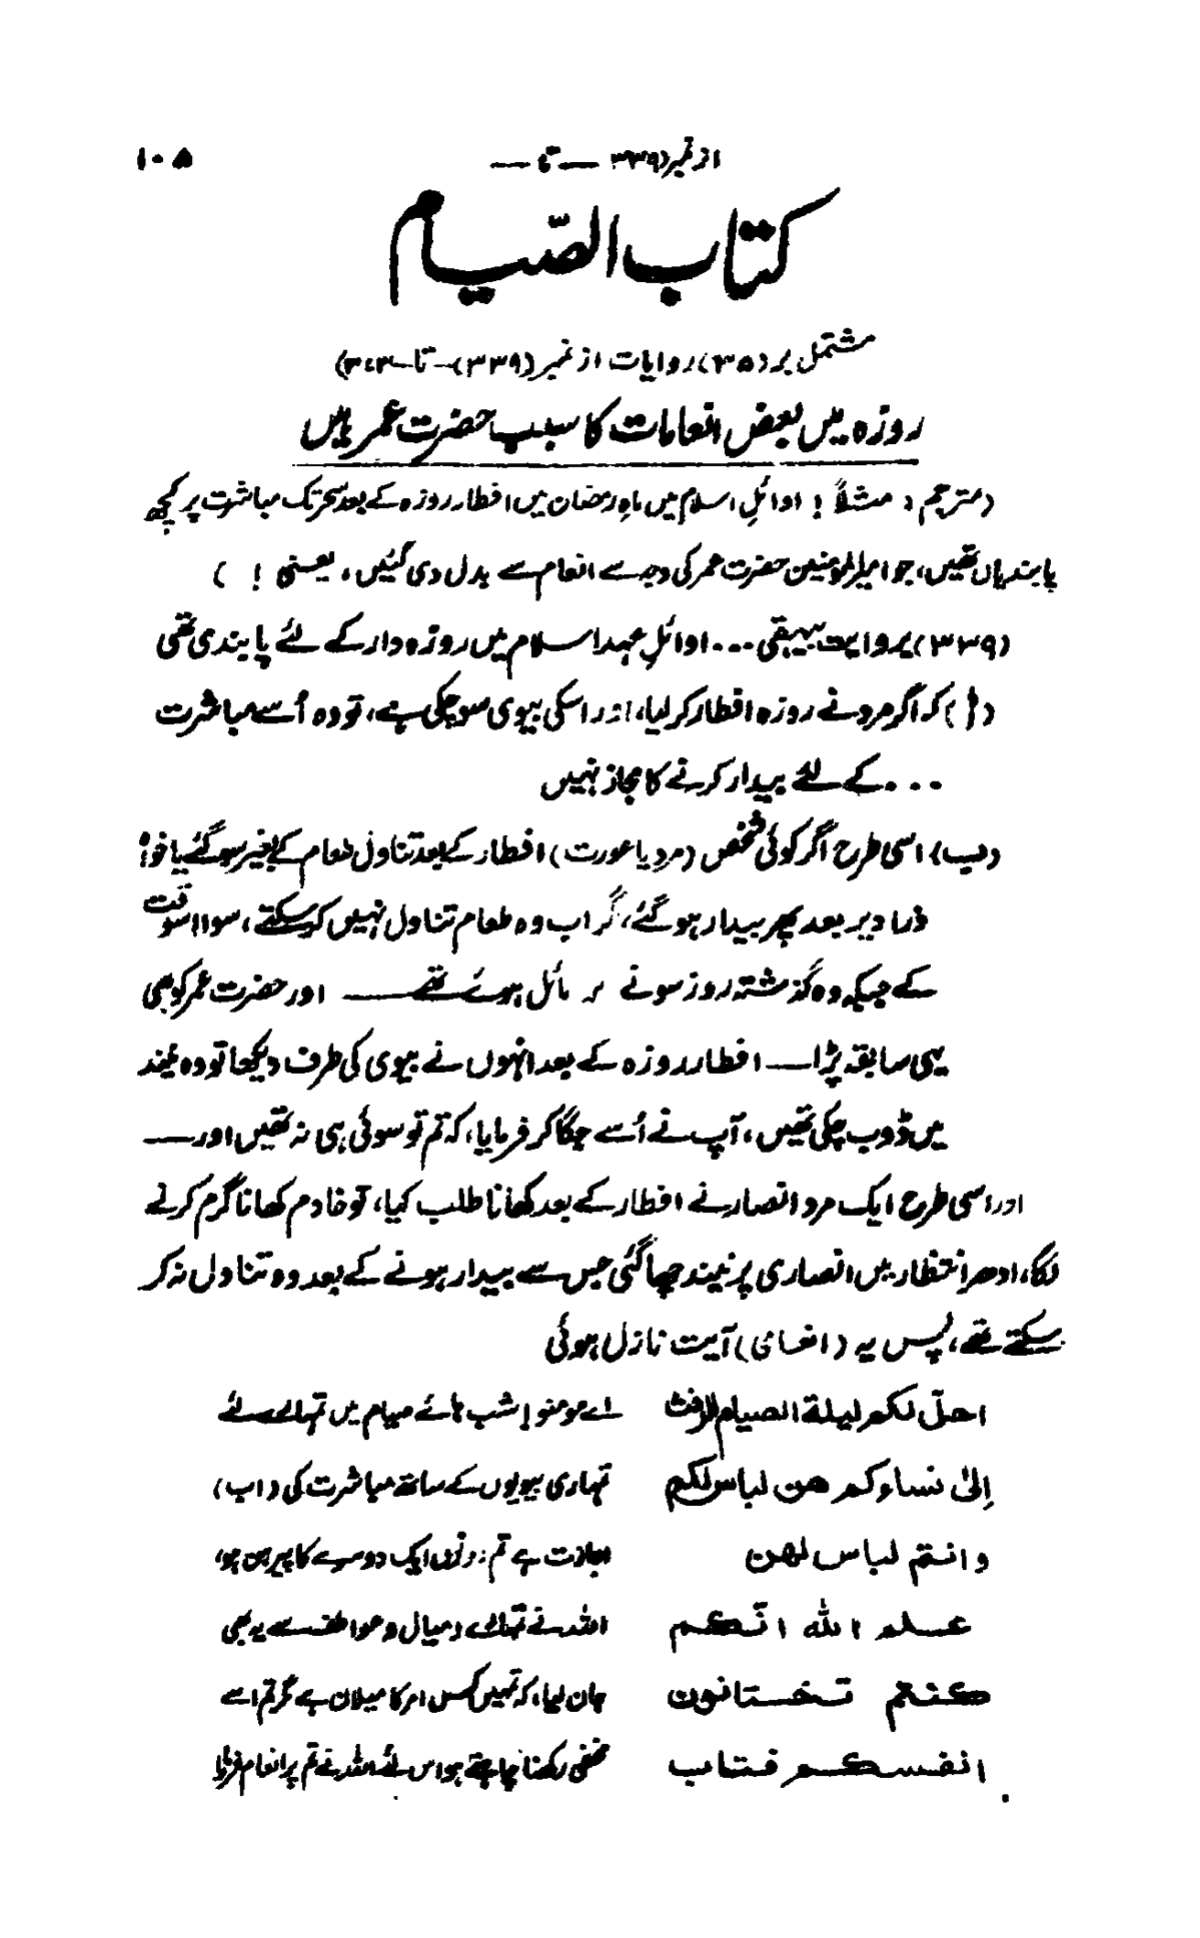 از نمبر(۳۳۹ — تا — ۱۰۵
کتاب الصّیام
مشتمل بر (۳۵) روایات از نمبر (۳۳۹)–تا–۳۷۳)
روزہ میں بعض انعامات کا سبب حضرت عمر ہیں
(مترجم : مثلاً ! اوائلِ اسلام میں ماہِ رمضان میں افطار روزہ کے بعد سحر تک مباشرت پر کچھ
پابندیاں تھیں، جو امیرالمومنین حضرت عمر کی وجہ سے انعام سے بدل دی گئیں، یعنی ! )
(۳۳۹) بروایت بیہقی ... اوائلِ عہد اسلام میں روزہ دار کے لئے پابندی تھی
(ا) کہ اگر مرد نے روزہ افطار کر لیا، اور اسکی بیوی سو چکی ہے، تو وہ اُسے مباشرت
... کے لئے بیدار کرنے کا مجاز نہیں
(ب) اسی طرح اگر کوئی شخص (مرد یا عورت) افطار کے بعد تناول طعام کے بغیر سو گئے یا خواہ
ذرا دیر بعد پھر بیدار ہو گئے، مگر اب وہ طعام تناول نہیں کر سکتے، سوا اسوقت
کے جبکہ وہ گذشتہ روز سونے پر مائل ہوئے تھے — اور حضرت عمر کو بھی
یہی سابقہ پڑا — افطار روزہ کے بعد انہوں نے بیوی کی طرف دیکھا تو وہ نیند
میں ڈوب چکی تھیں، آپ نے اُسے جگا کر فرمایا، کہ تم تو سوئی ہی نہ تھیں اور —
اور اسی طرح ایک مرد انصار نے افطار کے بعد کھانا طلب کیا، تو خادم کھانا گرم کرنے
لگا، ادھر انتظار میں انصاری پر نیند چھا گئی جس سے بیدار ہونے کے بعد وہ تناول نہ کر
سکتے تھے، پس یہ (انعامی) آیت نازل ہوئی
احلّ لکم لیلة الصیام الرفث اے مومنو! شب ہائے صیام میں تمہارے لئے
اِلیٰ نساءکم ھن لباس لکم تمہاری بیویوں کے ساتھ مباشرت کی (اب)
وانتم لباس لھن اجازت ہے تم دونوں ایک دوسرے کا پیرہن ہو،
علم الله انّکم اللہ نے تمہارے امیال و عواطف سے یہ بھی
کنتم تختانون جان لیا، کہ تمہیں کس امر کا میلان ہے مگر تم اسے
انفسکم فتاب مخفی رکھنا چاہتے ہو اس لئے اللہ نے تم پر انعام فرمایا